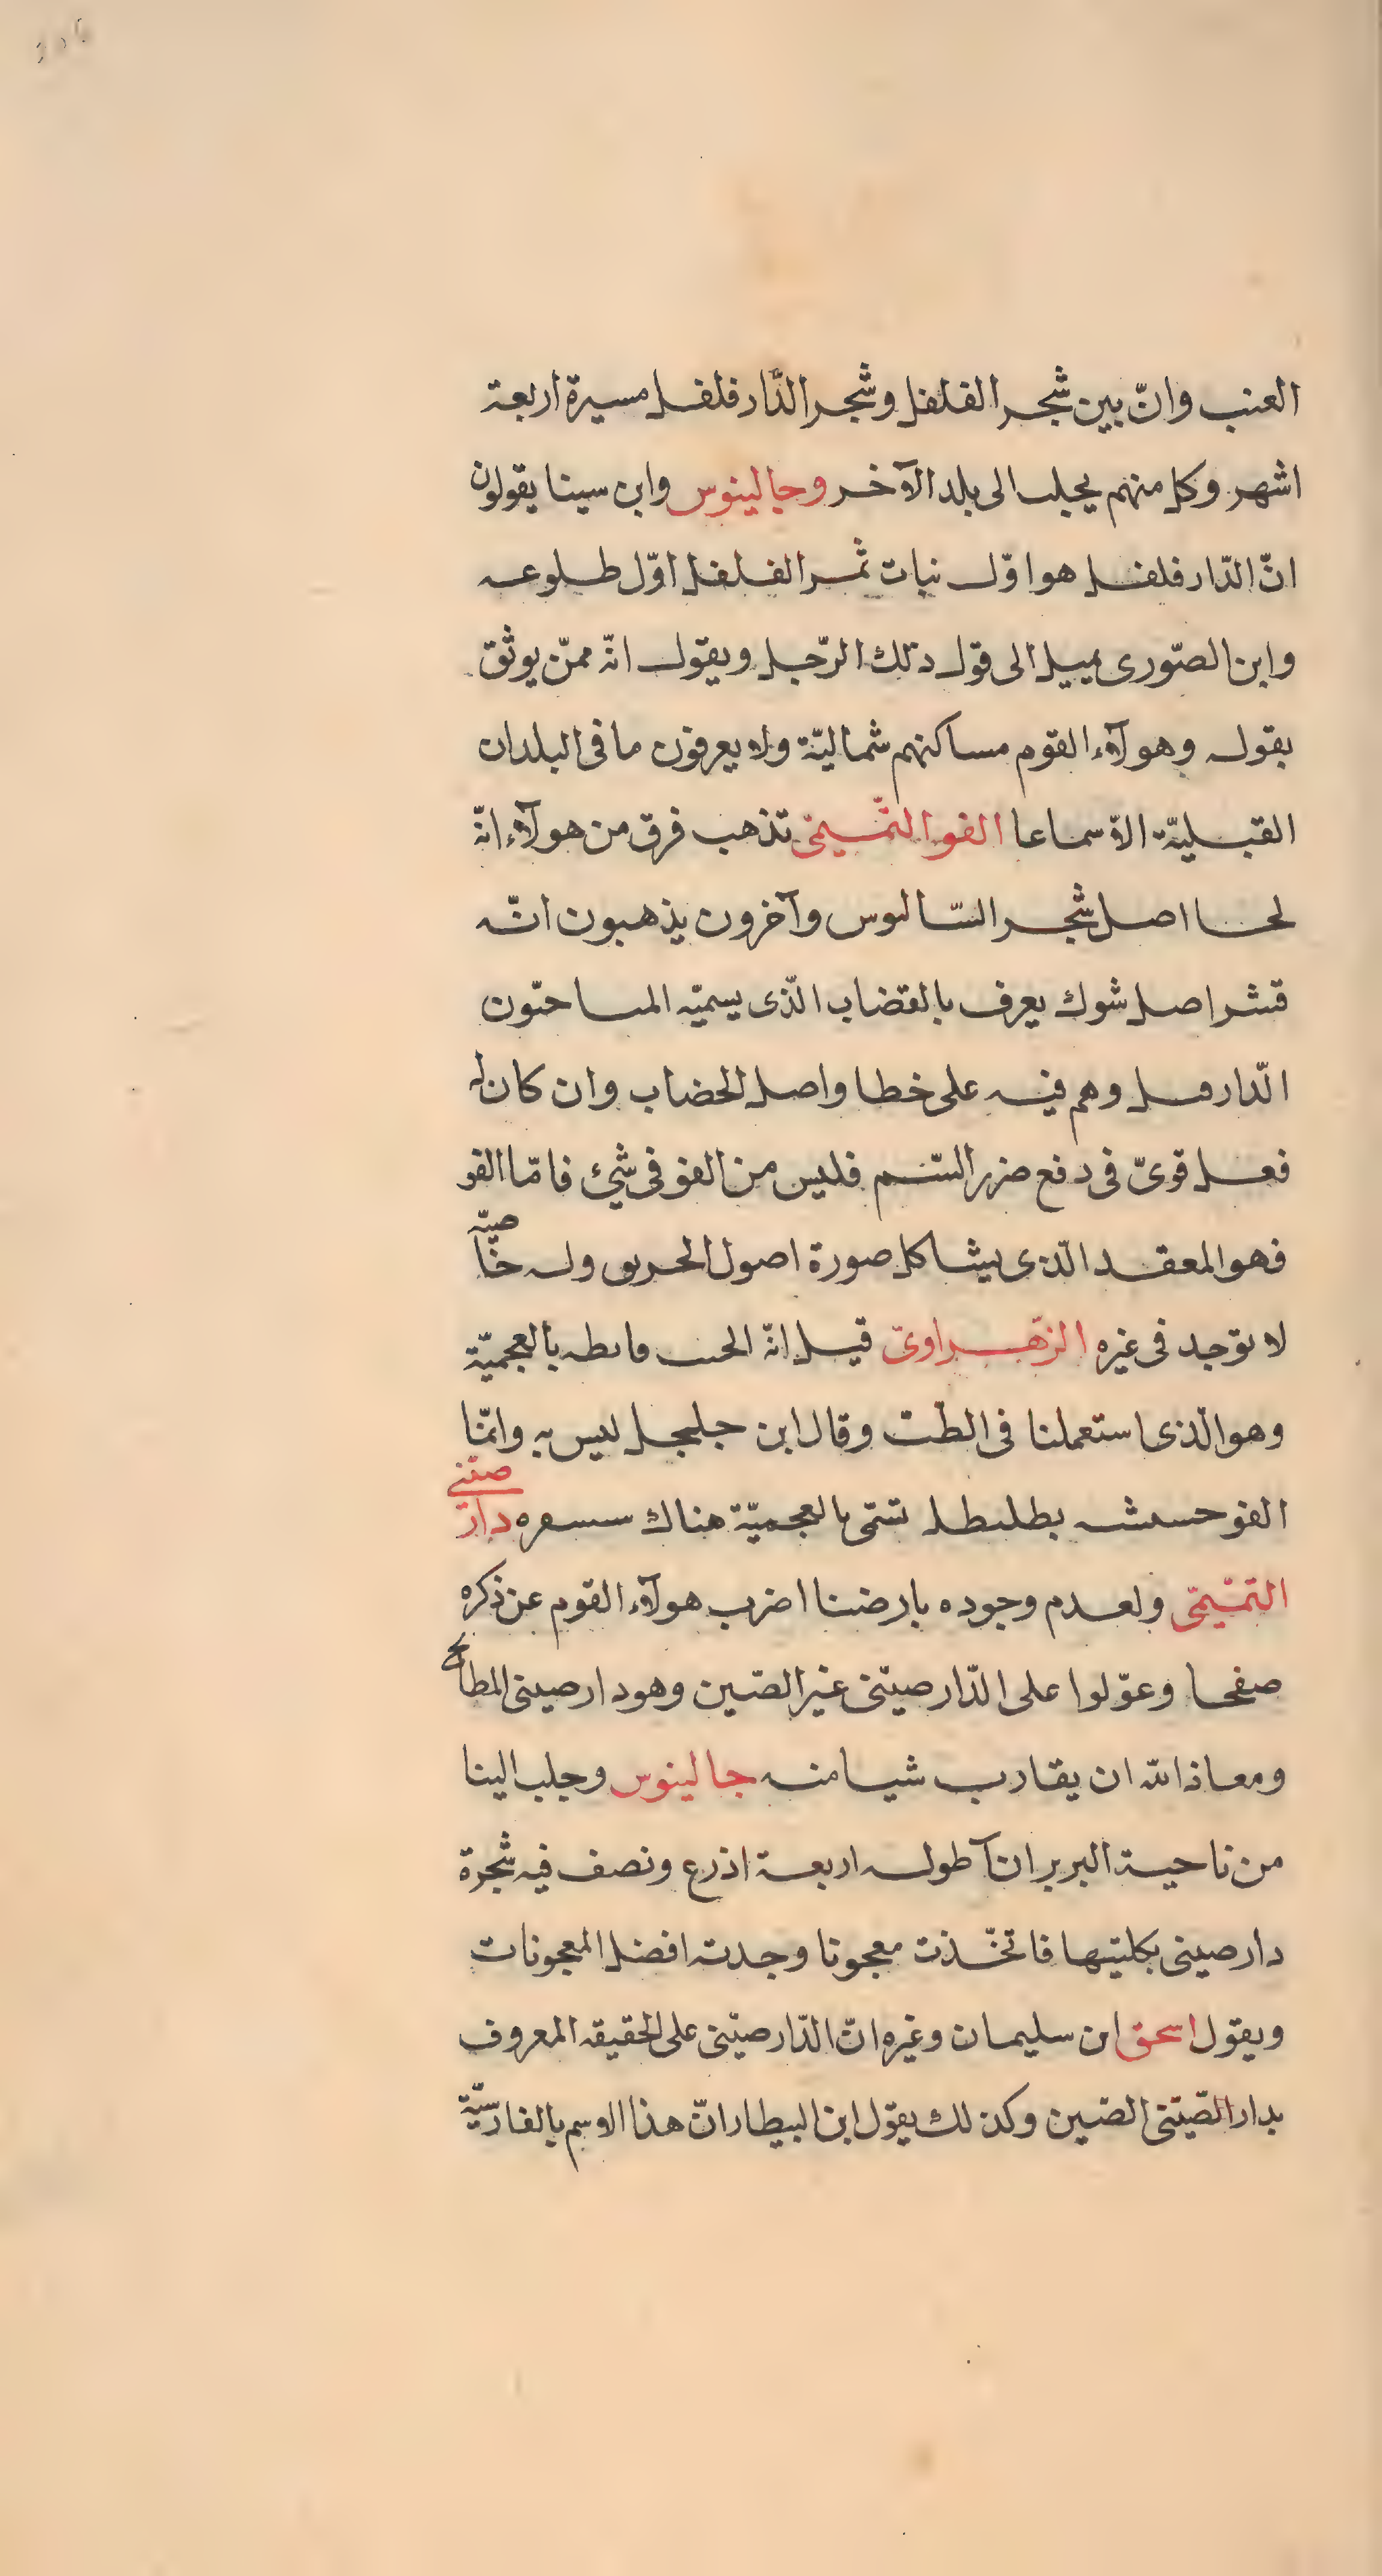 العنب وانّ بين شجر الفلفل وشجر الدّار فلفل مسيرة اربعة
اشهر وكل منهم يجلب الى بلد الآخر وجالينوس وابن سينا يقولون
انّ الدّار فلفل هو اوّل نبات ثمر الفلفل اوّل طلوعه
وابن الصّورى يميل الى قول ذلك الرّجل ويقول انّه ممّن يوثق
بقوله وهولآء القوم مساكنهم شماليّة ولا يعرفون ما فى البلدان
القبليّة الاّ سماعا الفو التّميمىّ تذهب فرق من هولآء انّه
لحا اصل شجر السّالوس وآخرون يذهبون انّه
قشر اصل شوك يعرف بالقضاب الّذى يسميّه المساحتون
الدّار وهم فيه على خطا واصل الحضاب وان كان له
فعل قوىّ فى دفع ضرر السّم فليس من الفو فى شئ فامّا الفو
فهو المعقد الّذى يشاكل صورة اصول الحربق وله خاصّيّه
لا توجد فى غيره الزّهراوىّ قيل انّه بالعجميّة
وهو الّذى استعملنا فى الطّب وقال ابن جلجل ليس به وانّما
الفو بطليطل تسمّى بالعجميّة هناك دار صينى
التّميمّى ولعدم وجوده بارضنا اضرب هولآء القوم عن ذكره
صفحا وعوّلوا على الدّار صينى غير الصّين وهو دارصينى المطابخ
ومعاذ الله ان يقارب شيا منه جالينوس وجلب الينا
من ناحية البربر انآ طوله اربعة اذرع ونصف فيه شجرة
دارصينى بكليتها فاتّخذت معجونا وجدته افضل المعجونات
ويقول اسحق ابن سليمان وغيره انّ الدّار صينّى على الحقيقه المعروف
بدار الصّينى الصّين وكذلك يقول ابن البيطار انّ هذا الاوسم بالفارسيّة